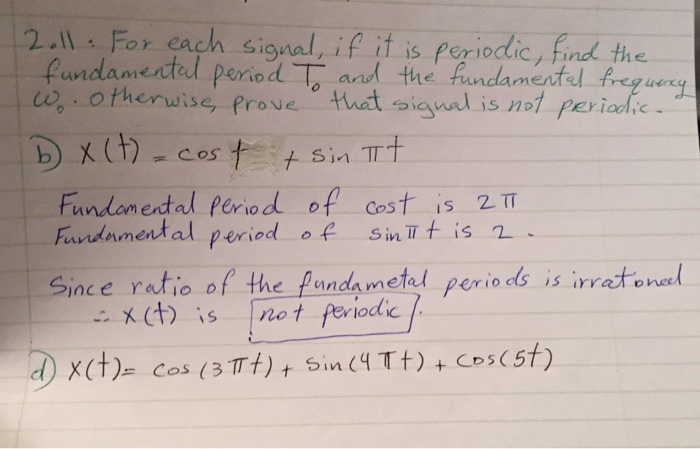 2.11: For each signal, if it is periodic, find the
fundamental period T₀ and the fundamental frequency
ω₀. otherwise, prove that signal is not periodic.
b) x(t) = cos t + sin πt
Fundamental Period of cost is 2π
Fundamental period of sinπt is 2.
Since ratio of the fundametal periods is irrational
∴ x(t) is not periodic.
d) x(t)= cos (3πt) + sin(4πt) + cos(5t)